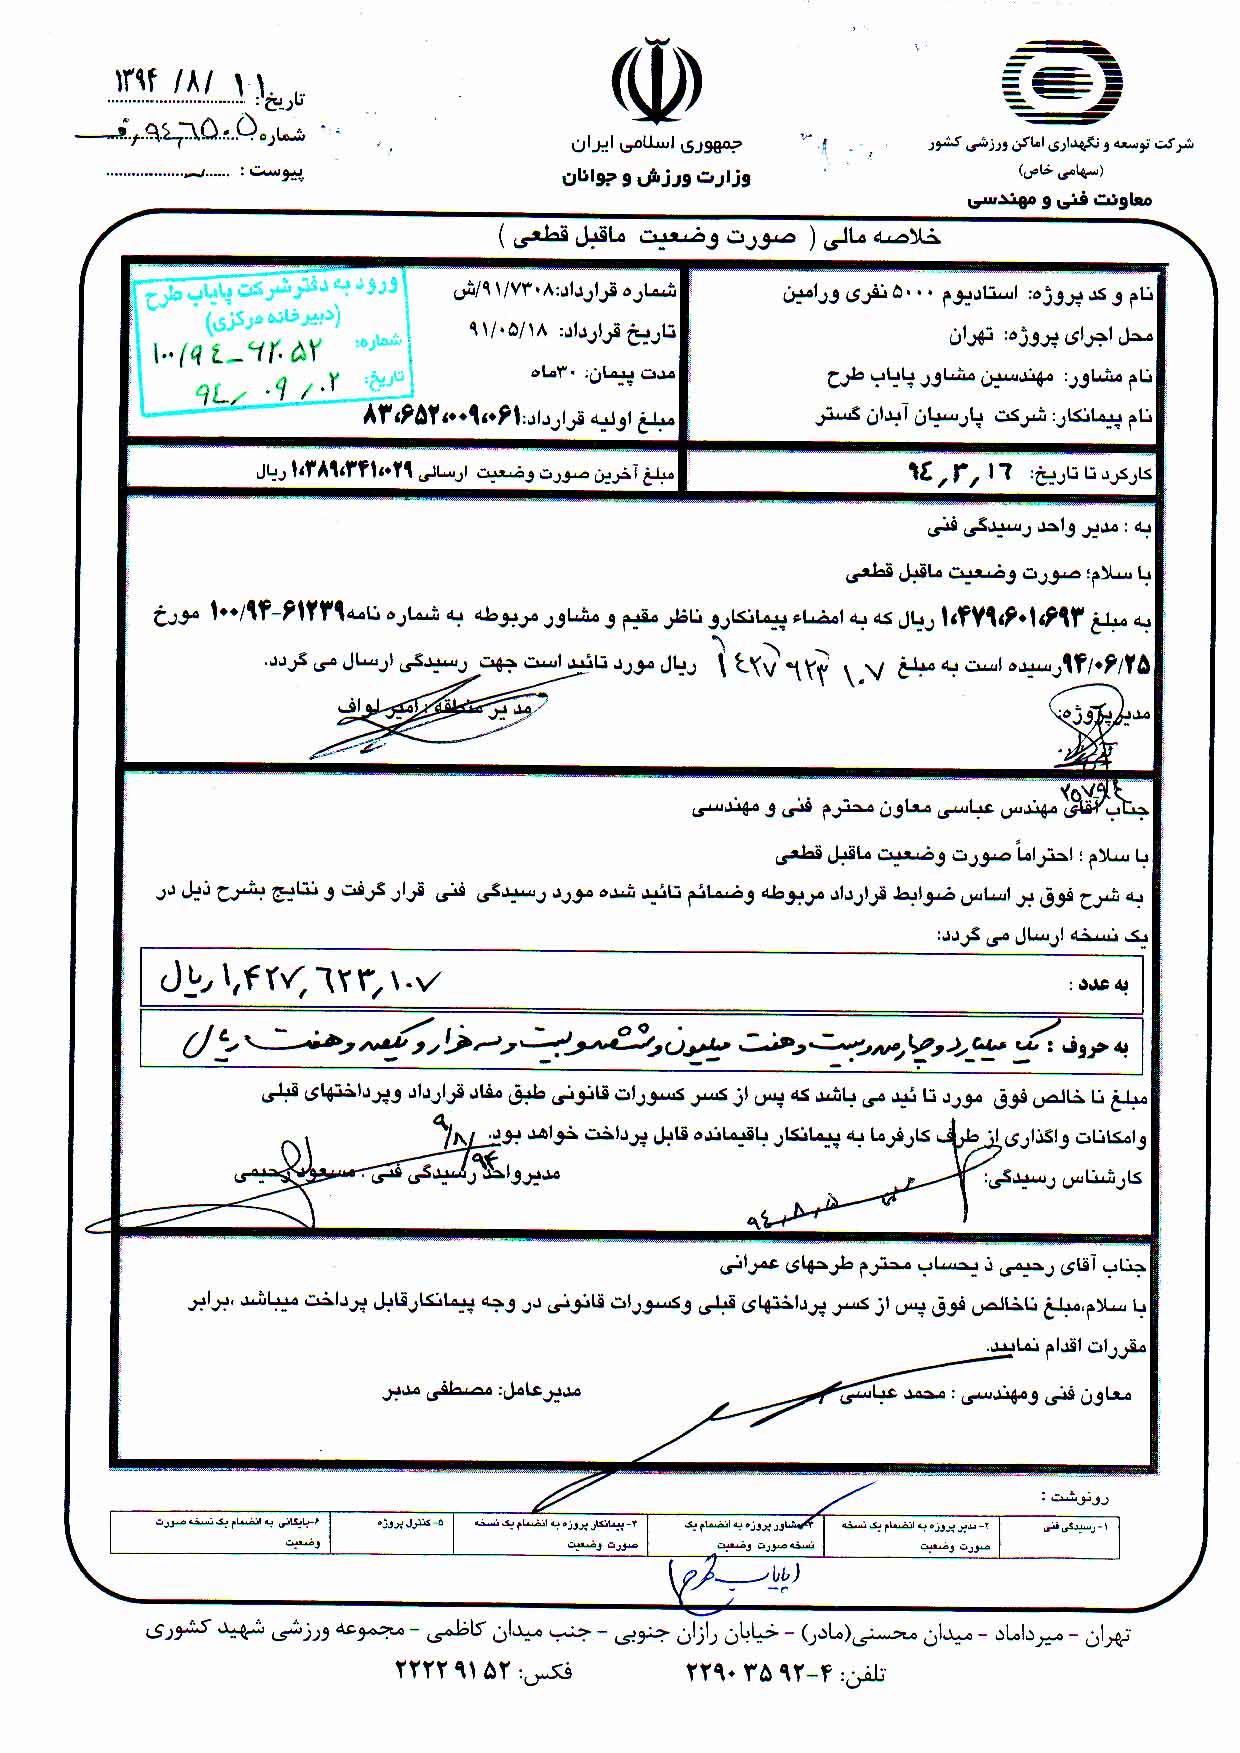 شرکت توسعه و نگهداری اماکن ورزشی کشور
(سهامی خاص)
معاونت فنی و مهندسی
جمهوری اسلامی ایران
وزارت ورزش و جوانان
تاریخ: ۱۳۹۴/۸/۱۱
شماره: ۹۴,۶۵۰۵
پیوست :
خلاصه مالی ( صورت وضعیت ماقبل قطعی )
نام و کد پروژه: استادیوم ۵۰۰۰ نفری ورامین
محل اجرای پروژه: تهران
نام مشاور: مهندسین مشاور پایاب طرح
نام پیمانکار: شرکت پارسیان آبدان گستر
شماره قرارداد: ۹۱/۷۳۰۸/ش
تاریخ قرارداد: ۹۱/۰۵/۱۸
مدت پیمان: ۳۰ماه
مبلغ اولیه قرارداد:۸۳،۶۵۲،۰۰۹،۰۶۱
ورود به دفتر شرکت پایاب طرح
(دبیرخانه مرکزی)
شماره: ۱۰۰/۹۴-۶۲۰۵۲
تاریخ: ۹۴/۰۹/۰۲
کارکرد تا تاریخ: ۹۴,۳,۱۶
مبلغ آخرین صورت وضعیت ارسالی ۱،۳۸۹،۳۴۱،۰۲۹ ریال
به : مدیر واحد رسیدگی فنی
با سلام؛ صورت وضعیت ماقبل قطعی
به مبلغ ۱،۴۷۹،۶۰۱،۶۹۳ ریال که به امضاء پیمانکارو ناظر مقیم و مشاور مربوطه به شماره نامه۶۱۲۳۹-۱۰۰/۹۴ مورخ
۹۴/۰۶/۲۵رسیده است به مبلغ ۱۴۲۷۶۲۳۱۰۷ ریال مورد تائید است جهت رسیدگی ارسال می گردد.
مدیرپروژه:
مدیر منطقه : امیر لواف
جناب آقای مهندس عباسی معاون محترم فنی و مهندسی
با سلام ؛ احتراماً صورت وضعیت ماقبل قطعی
به شرح فوق بر اساس ضوابط قرارداد مربوطه وضمائم تائید شده مورد رسیدگی فنی قرار گرفت و نتایج بشرح ذیل در
یک نسخه ارسال می گردد:
به عدد : ۱,۴۲۷,۶۲۳,۱۰۷ ریال
به حروف : یک میلیارد و چهارصد و بیست و هفت میلیون و ششصد و بیست و سه هزار و یکصد و هفت ریال
مبلغ نا خالص فوق مورد تا ئید می باشد که پس از کسر کسورات قانونی طبق مفاد قرارداد وپرداختهای قبلی
وامکانات واگذاری از طرف کارفرما به پیمانکار باقیمانده قابل پرداخت خواهد بود.
کارشناس رسیدگی:
۹۴,۸,۵
مدیرواحد رسیدگی فنی : مسعود رحیمی
۹۴/۸/۹
جناب آقای رحیمی ذ یحساب محترم طرحهای عمرانی
با سلام،مبلغ ناخالص فوق پس از کسر پرداختهای قبلی وکسورات قانونی در وجه پیمانکارقابل پرداخت میباشد ،برابر
مقررات اقدام نمایید.
معاون فنی ومهندسی : محمد عباسی
مدیرعامل: مصطفی مدبر
رونوشت :
۱- رسیدگی فنی
۲- مدیر پروژه به انضمام یک نسخه
صورت وضعیت
۳-مشاور پروژه به انضمام یک
نسخه صورت وضعیت
۴- پیمانکار پروژه به انضمام یک نسخه
صورت وضعیت
۵- کنترل پروژه
۶-بایگانی به انضمام یک نسخه صورت
وضعیت
(پایاب طرح)
تهران - میرداماد - میدان محسنی(مادر) - خیابان رازان جنوبی - جنب میدان کاظمی - مجموعه ورزشی شهید کشوری
تلفن: ۴-۲۲۹۰۳۵۹۲
فکس: ۲۲۲۲۹۱۵۲